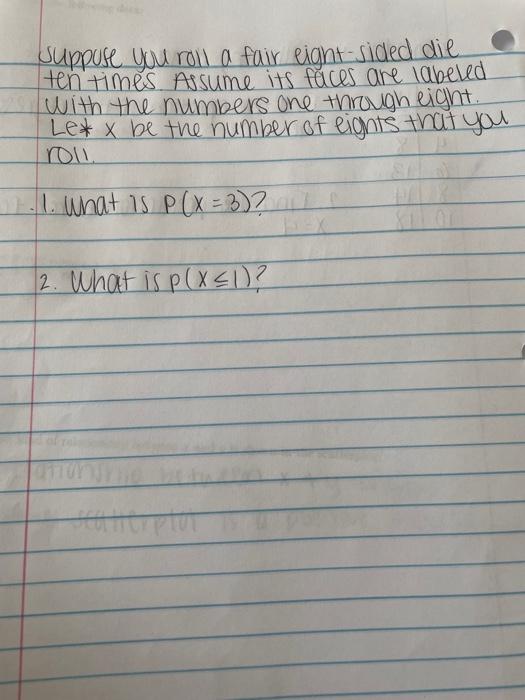 suppose you roll a fair eight-sided die
ten times. Assume its faces are labeled
with the numbers one through eight.
Let x be the number of eights that you
roll.
1. What is P(X=3)?
2. What is p(X≤1)?